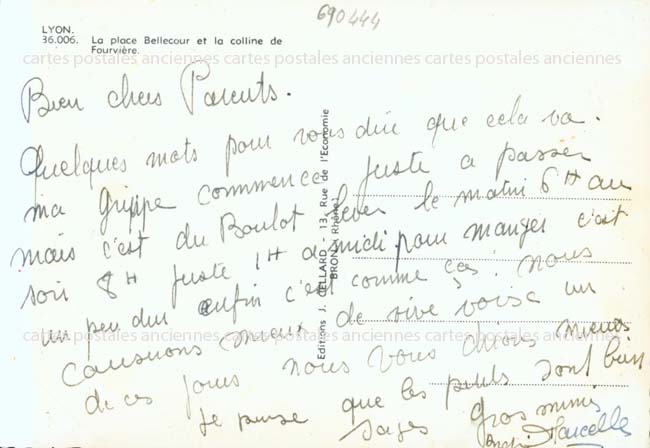 690444
LYON.
36.006. La place Bellecour et la colline de
Fourvière.
cartes postales anciennes cartes postales anciennes cartes postales anciennes
Bien chers Parents.
Quelques mots pour vous dire que cela va.
ma grippe commence juste a passer
mais c'est du Boulot lever le matin 6H au
soir 8H juste 1H a midi pour manger c'est
un peu dur enfin c'est comme ças. nous
causerons mieux de vive voise un
de ces jours nous vous dirons mieux
Je pense que les petits sont bien
sages Gros mimis
Marcelle
Editions J. CELLARD - 13, Rue de l'Economie
BRON (Rhône)
cartes postales anciennes cartes postales anciennes cartes postales anciennes